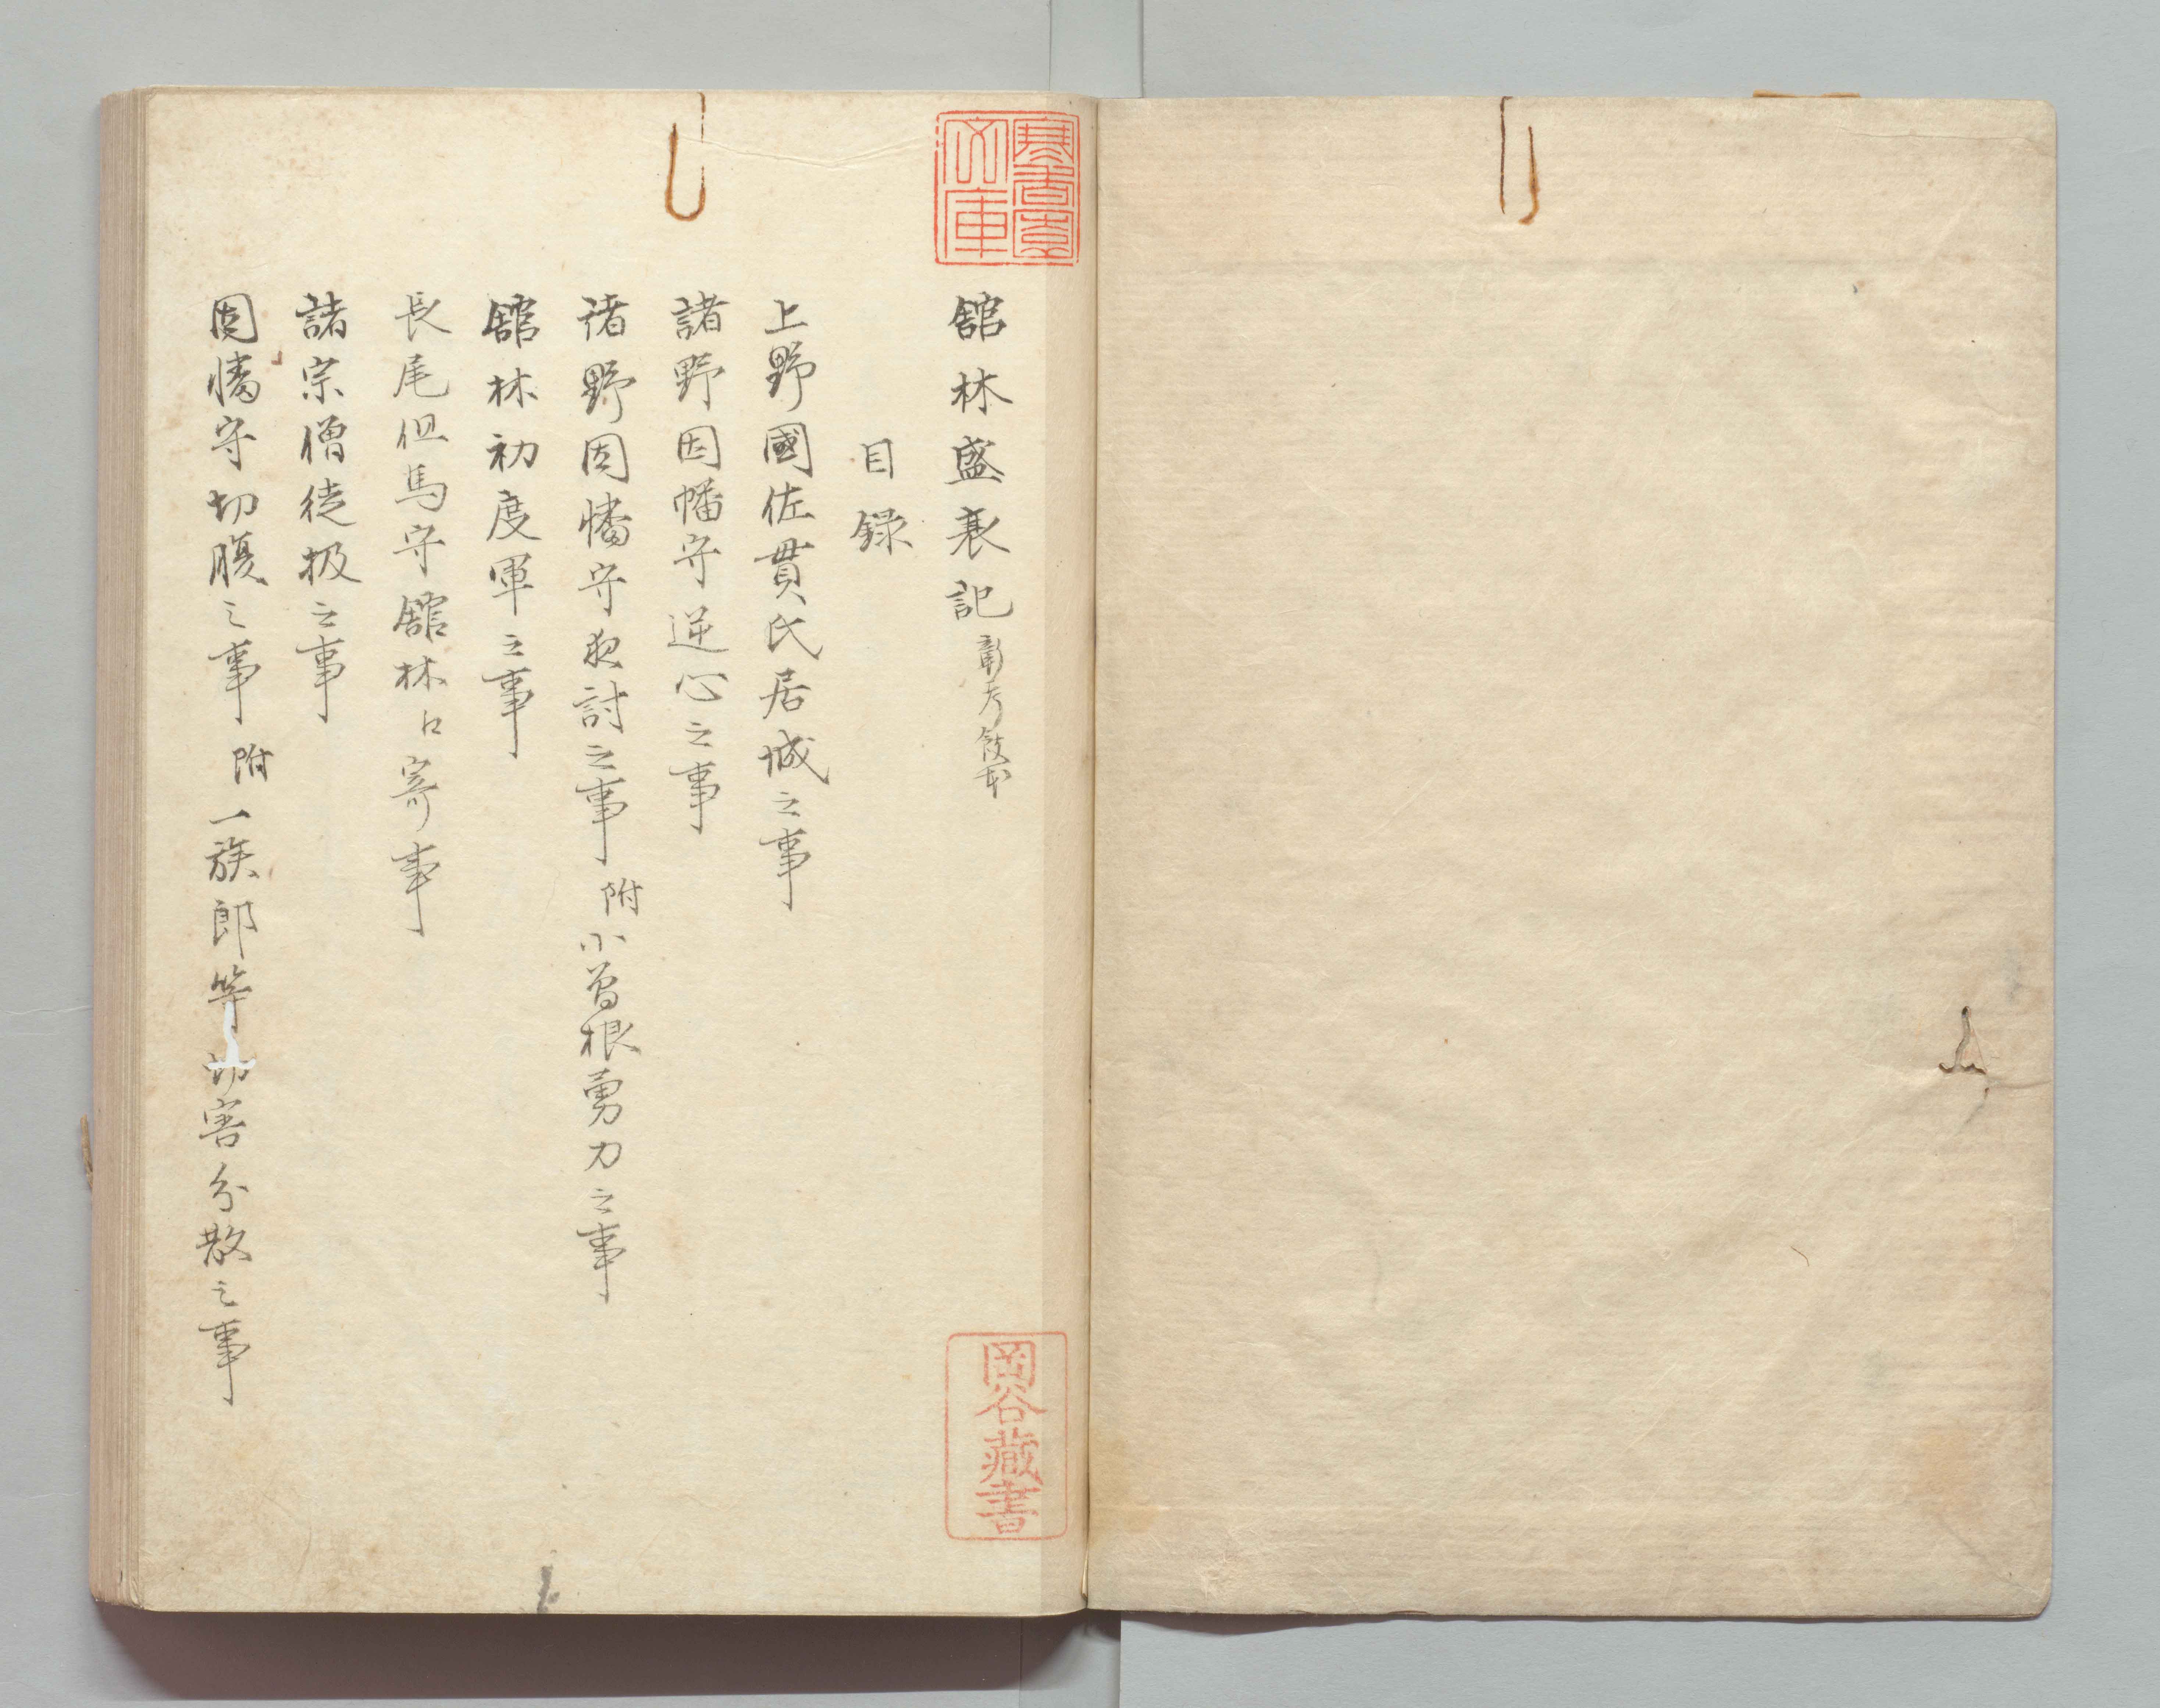 寒香園文庫
舘林盛衰記 彰考館本
目録
上野國佐貫氏居城之事
諸野因幡守逆心之事
諸野因幡守夜討之事 附小曽根勇力之事
舘林初度軍之事
長尾但馬守舘林寄事
諸宗僧徒扱之事
因幡守切腹之事 附一族郎等害分散之事
岡谷藏書